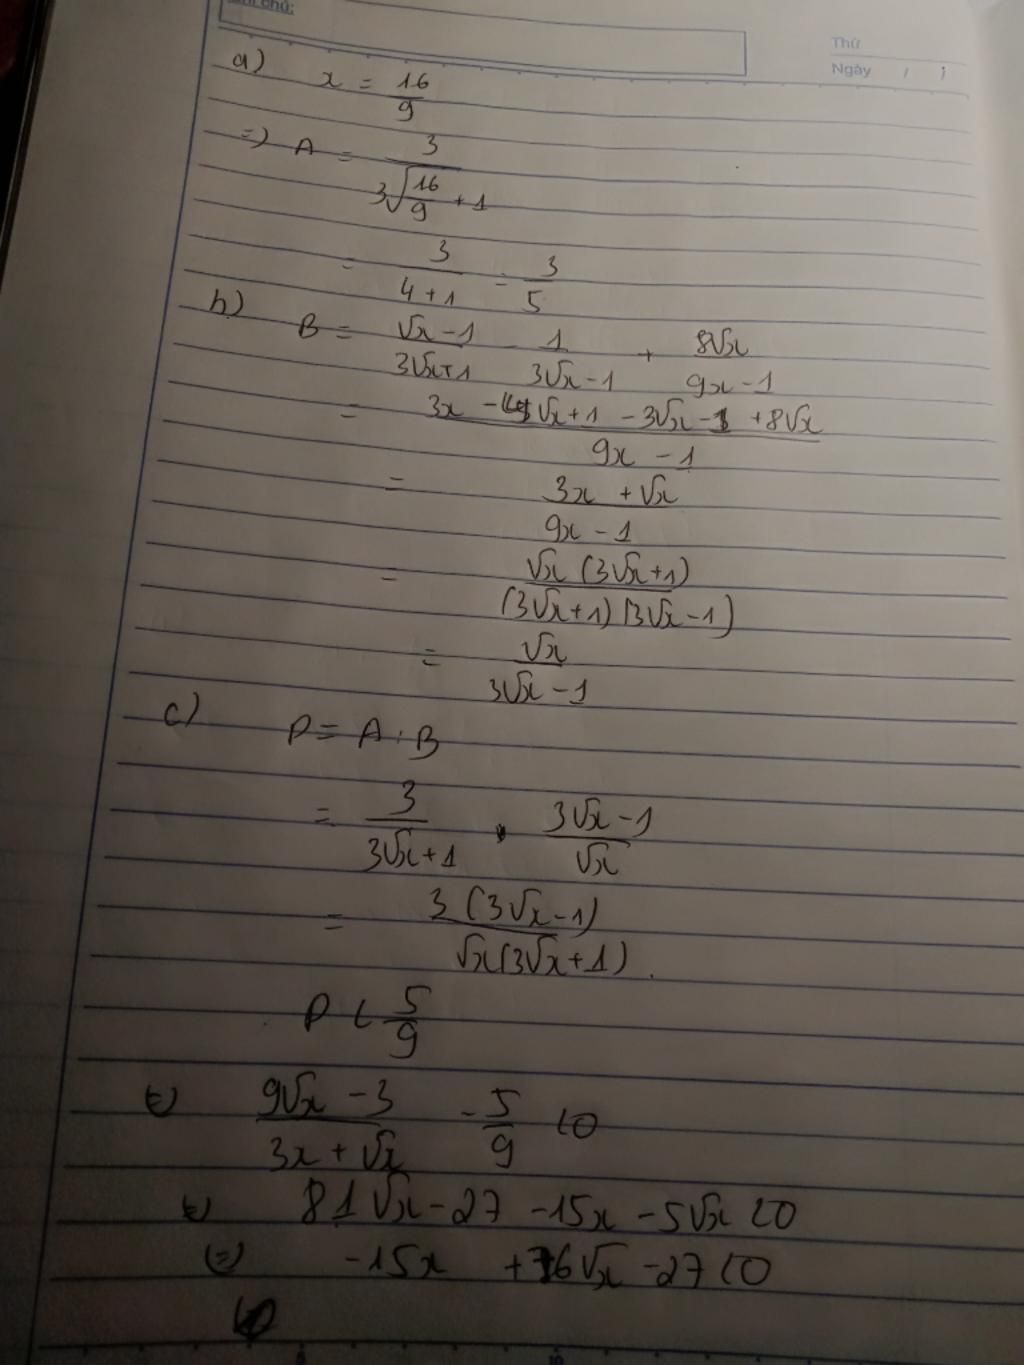 Ghi chú:
Thứ
Ngày / /
a) x = 16/9
=) A = 3/(3√(16/9) + 1)
= 3/(4 + 1) = 3/5
b) B = (√x - 1)/(3√x + 1) - 1/(3√x - 1) + 8√x/(9x - 1)
= (3x - 4√x + 1 - 3√x - 1 + 8√x)/(9x - 1)
= (3x + √x)/(9x - 1)
= √x (3√x + 1)/((3√x + 1)(3√x - 1))
= √x/(3√x - 1)
c) P = A : B
= 3/(3√x + 1) . (3√x - 1)/√x
= 3(3√x - 1)/(√x(3√x + 1)).
P < 5/9
(=) (9√x - 3)/(3x + √x) - 5/9 < 0
(=) 81√x - 27 - 15x - 5√x < 0
(=) -15x + 76√x - 27 < 0
5 10